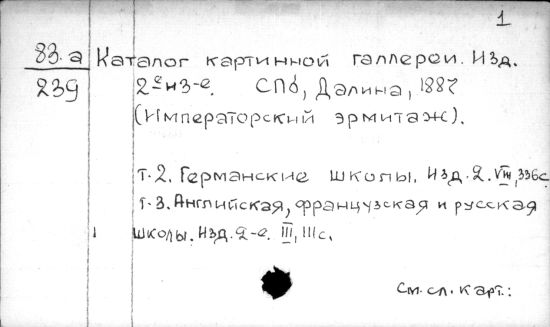 1
83.а Каталог картинной галлереи. Изд.
239 2ᵉ изд-е. СПб, Далина, 1887
(Императорский эрмитаж).
т.2. Германские школы. Изд.2. VIII, 336с
т.3. Английская, французская и русская
школы. Изд.2-е. III, 111с.
См. сл. карт.: